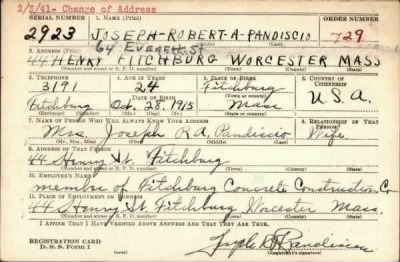 2/3/41- Change of Address
SERIAL NUMBER 1. NAME (Print) ORDER NUMBER
2923 JOSEPH-ROBERT-A-PANDISCIO 729
64 EVERETT ST
2. ADDRESS (Print)
44 HENRY FITCHBURG WORCESTER MASS
(Number and street or R. F. D. number) (Town) (County) (State)
3. TELEPHONE 4. AGE IN YEARS 5. PLACE OF BIRTH 6. COUNTRY OF CITIZENSHIP
3191 24 Fitchburg
DATE OF BIRTH (Town or county)
Fitchburg Oct. 28, 1915 Mass U.S.A.
(Exchange) (Mo.) (Day) (Yr.) (State or country)
7. NAME OF PERSON WHO WILL ALWAYS KNOW YOUR ADDRESS 8. RELATIONSHIP OF THAT PERSON
Mrs. Joseph R A. Pandiscio Wife
(Mr., Mrs., Miss) (First) (Middle) (Last)
9. ADDRESS OF THAT PERSON
44 Henry St. Fitchburg
(Number and street or R. F. D. number) (Town) (County) (State)
10. EMPLOYER'S NAME
member of Fitchburg Concrete Construction Co
11. PLACE OF EMPLOYMENT OR BUSINESS
44 Henry St. Fitchburg Worcester Mass.
(Number and street or R. F. D. number) (Town) (County) (State)
I AFFIRM THAT I HAVE VERIFIED ABOVE ANSWERS AND THAT THEY ARE TRUE.
REGISTRATION CARD
D. S. S. Form 1
Joseph R A Pandiscio
(Registrant's signature)